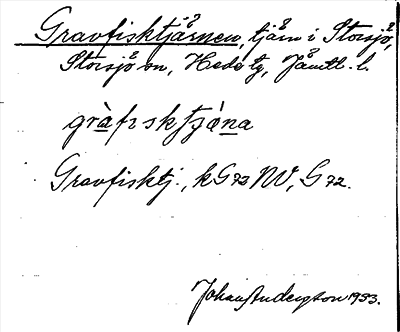 Gravfisktjärnen, tjärn i Storsjö,
Storsjö sn, Hede tg, Jämtl. l.
gràfısktjǻna
Gravfisktj., kG73NV, G72.
Johan Anderston 1933.